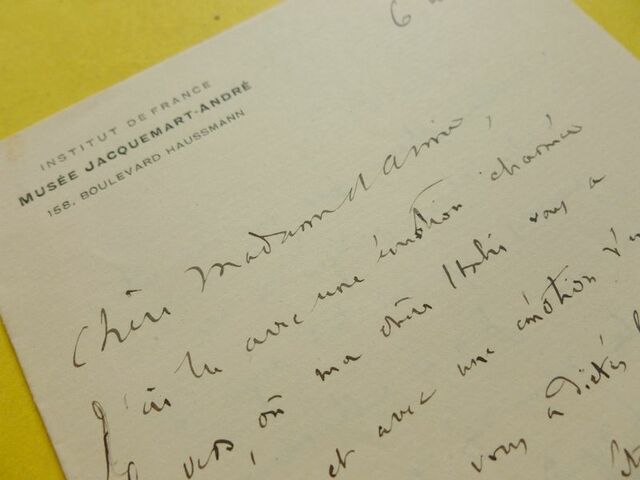 6
INSTITUT DE FRANCE
MUSÉE JACQUEMART-ANDRÉ
158, BOULEVARD HAUSSMANN
Chère Madame et Amie,
J'ai lu avec une émotion charmée
vers, où ma chère Italie vous a
et avec une émotion
vous a dictés